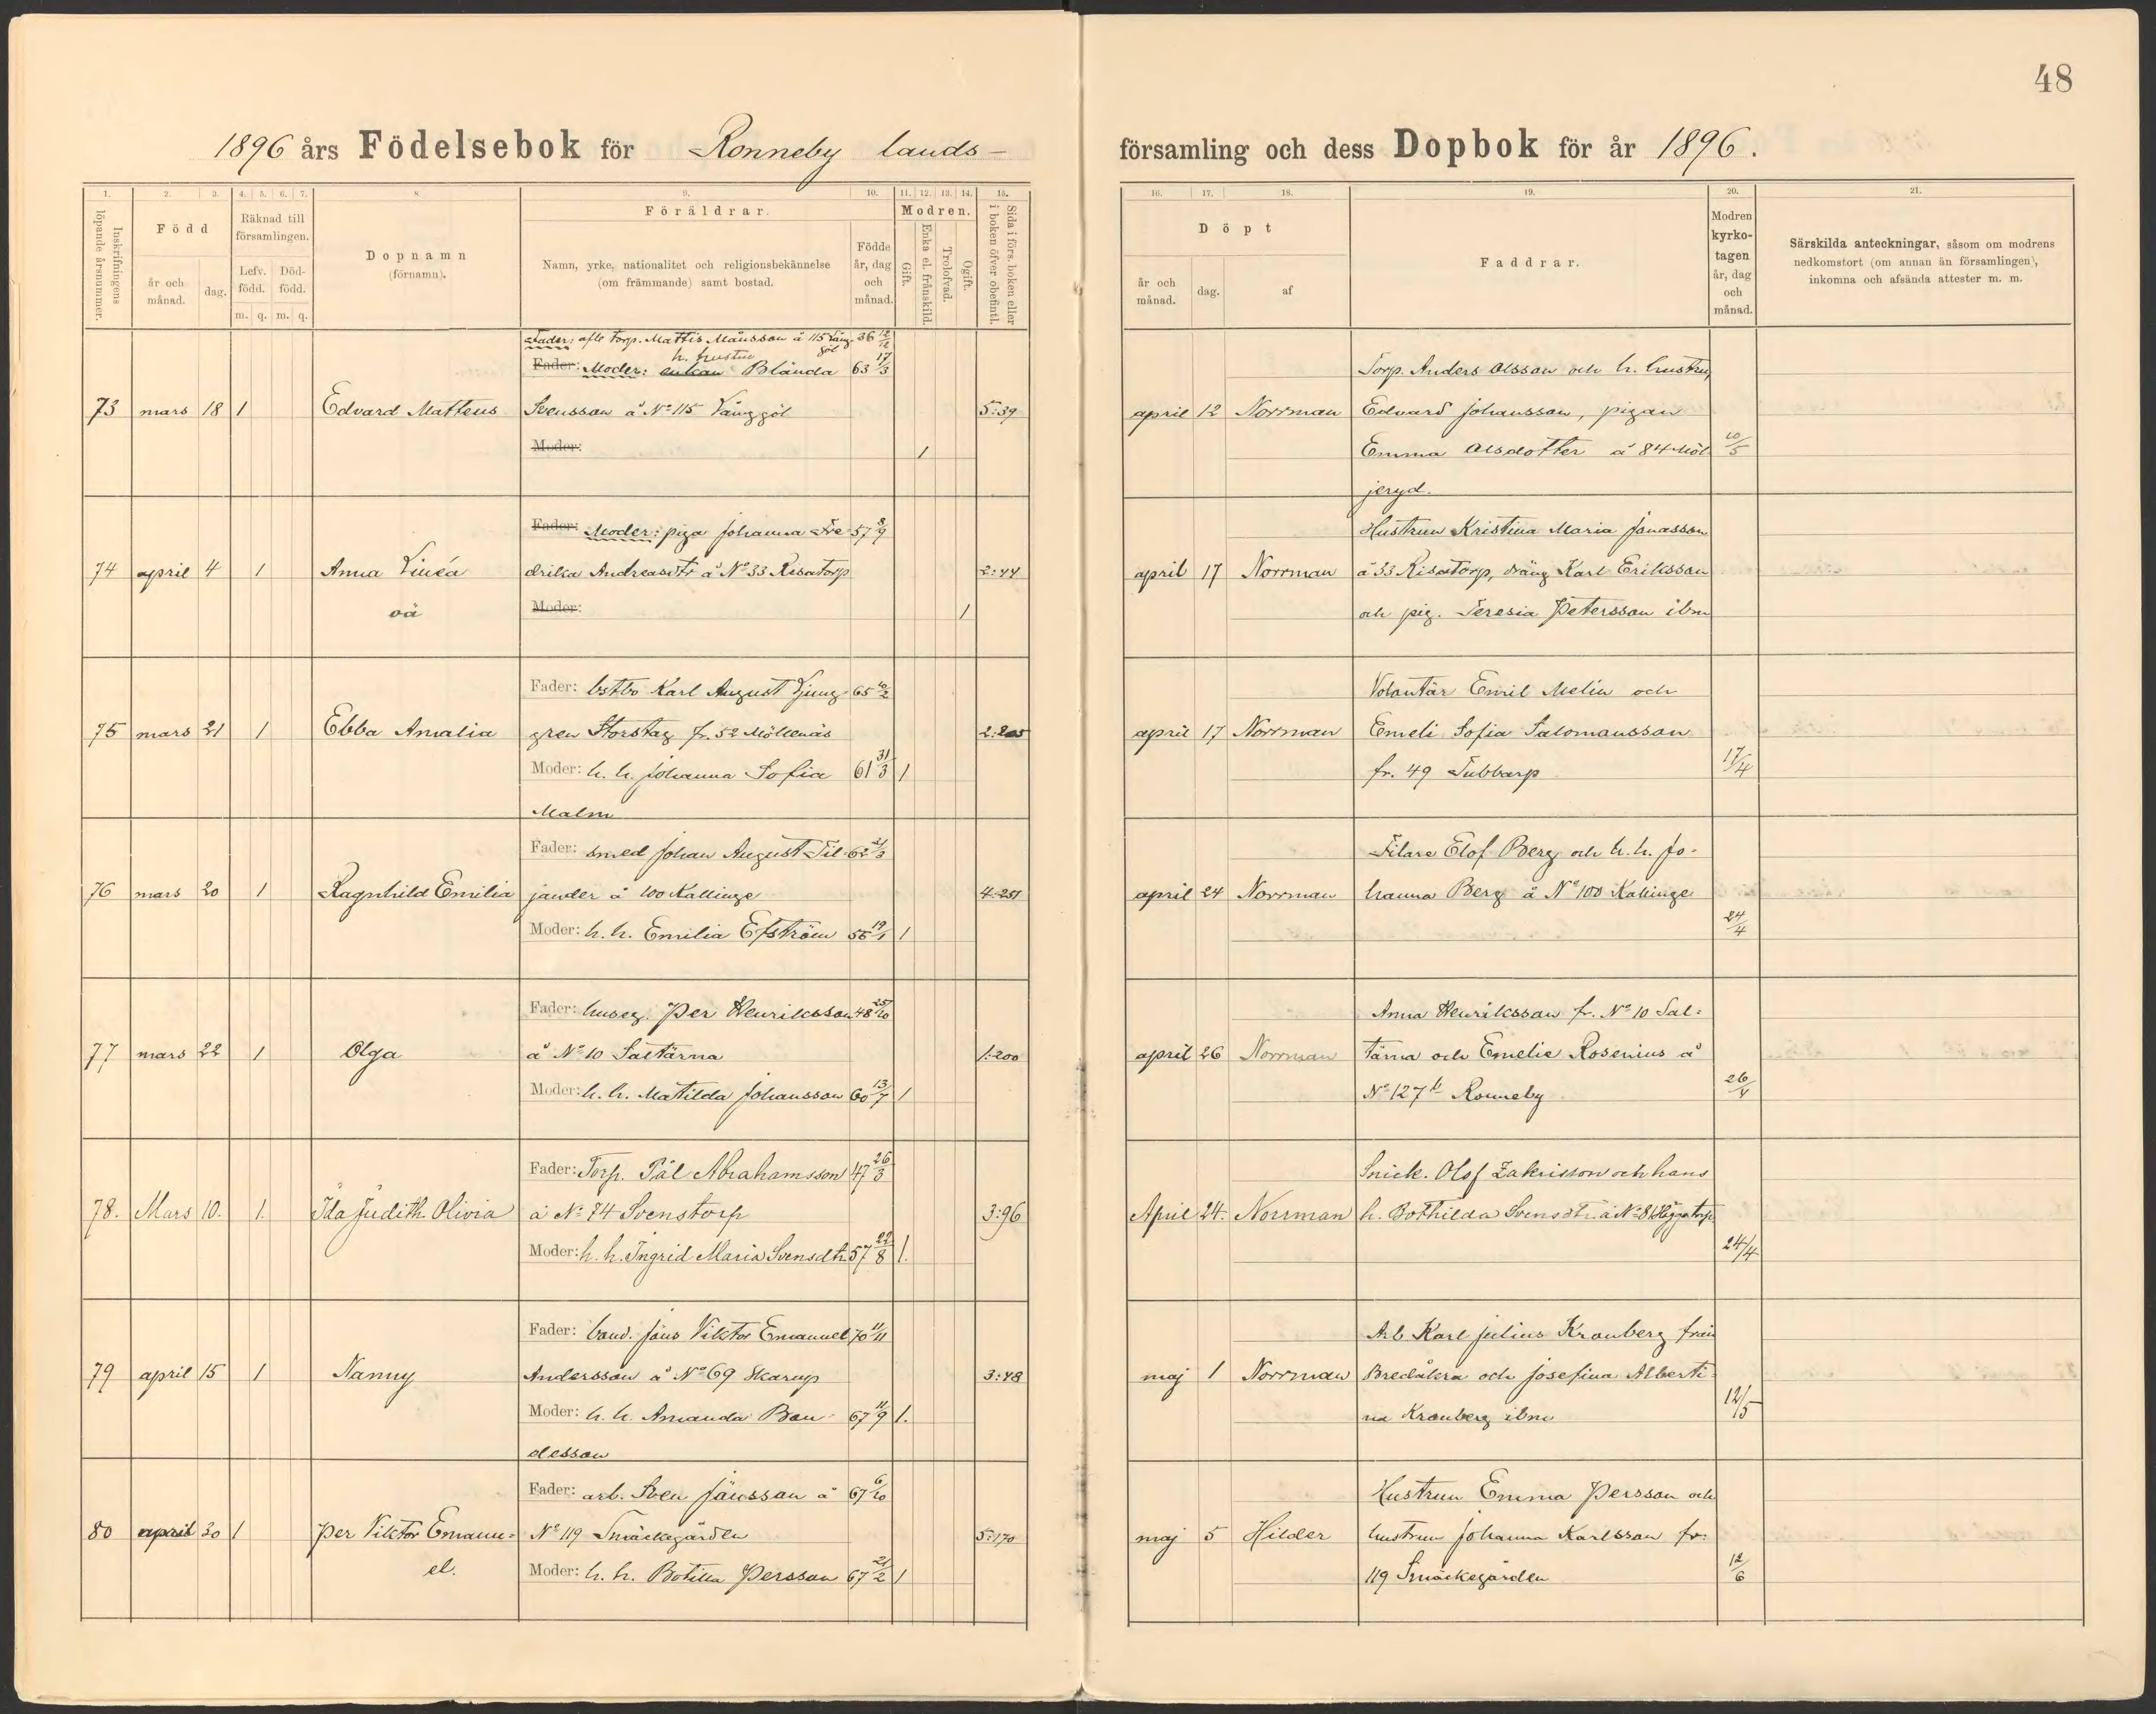 48
1896 års Födelsebok för Ronneby lands-
församling och dess Dopbok för år 1896.
1. 2. 3. 4. 5. 6. 7. 8. 9. 10. 11. 12. 13. 14. 15.
Inskrifningens löpande årsnummer.
Född
år och månad.
dag.
Räknad till församlingen.
Lefv. född.
Död-född.
m. q. m. q.
Dopnamn
(förnamn).
Föräldrar.
Namn, yrke, nationalitet och religionsbekännelse
(om främmande) samt bostad.
Födde år, dag och månad.
Modren.
Gift.
Enka el. frånskild.
Trolofvad.
Ogift.
Sida i förs. boken eller i boken öfver obefintl.
16. 17. 18. 19. 20. 21.
Döpt
år och månad.
dag.
af
Faddrar.
Modren kyrko-tagen år, dag och månad.
Särskilda anteckningar, såsom om modrens
nedkomstort (om annan än församlingen),
inkomna och afsända attester m. m.
Fader: afl. torp. Mattis Månsson å 115 Långgöl 36 12/12
h. hustru
Fader: Moder: enkan Blända 63 17/3
73 mars 18 1 Edvard Matteus Svensson å No 115 Långgöl 5:39
Moder: 1
Torp. Anders Olsson och h. hustru,
april 12 Norrman Edvard Johansson, pigan
Emma Olsdotter å 84 Möl 10/5
jeryd.
Fader: Moder: piga Johanna Fre- 57 8/9
74 april 4 1 Anna Linéa drika Andreasdtr å No 33 Risatorp 2:44
oä Moder: 1
Hustrun Kristina Maria Jonasson
april 17 Norrman å 33 Risatorp, dräng Karl Eriksson
och pig. Teresia Petersson ibm
Fader: bstbo Karl August Ljung- 65 10/2
75 mars 21 1 Ebba Amalia gren Storstag fr. 52 Möllenäs 2:205
Moder: h. h. Johanna Sofia 61 31/3 1
Malm
Volontär Emil Melin och
april 17 Norrman Emeli Sofia Salomonsson
fr. 49 Tubbarp 17/4
Fader: smed Johan August Sil- 62 21/3
76 mars 20 1 Ragnhild Emilia jander å 100 Kallinge 4:251
Moder: h. h. Emilia Efström 55 19/1 1
Filare Elof Berg och h. h. Jo-
april 24 Norrman hanna Berg å No 100 Kallinge
24/4
Fader: huseg. Per Henriksson 48 25/10
77 mars 22 1 Olga å No 10 Saltärna 1:200
Moder: h. h. Matilda Johansson 60 13/7 1
Anna Henriksson fr. No 10 Sal-
april 26 Norrman tärna och Emelie Rosenius å
No 127 b Ronneby 26/4
Fader: Torp. Pål Abrahamsson 47 26/3
78. Mars 10. 1. Ida Judith Olivia å No 74 Svenstorp 3:96
Moder: h. h. Ingrid Maria Svensdtr 57 22/8 1.
Snick. Olof Zakrisson och hans
April 24. Norrman h. Bothilda Svensdtr. å No 81 Häggatorp.
24/4
Fader: band. Jöns Viktor Emanuel 70 11/11
79 april 15 1 Nanny Andersson å No 69 Skarup 3:48
Moder: h. h. Amanda Bon- 67 11/9 1.
desson
Arb Karl Julius Kronberg från
maj 1 Norrman Bredåkra och Josefina Alberti-
na Kronberg ibm 12/5
Fader: arb. Sven Jönsson å 67 6/10
80 april 30 1 Per Viktor Emanu- No 119 Smäckegården 5:170
el. Moder: h. h. Botilla Persson 67 21/2 1
Hustrun Emma Persson och
maj 5 Hilder hustrun Johanna Karlsson fr.
119 Smäckegården 12/6